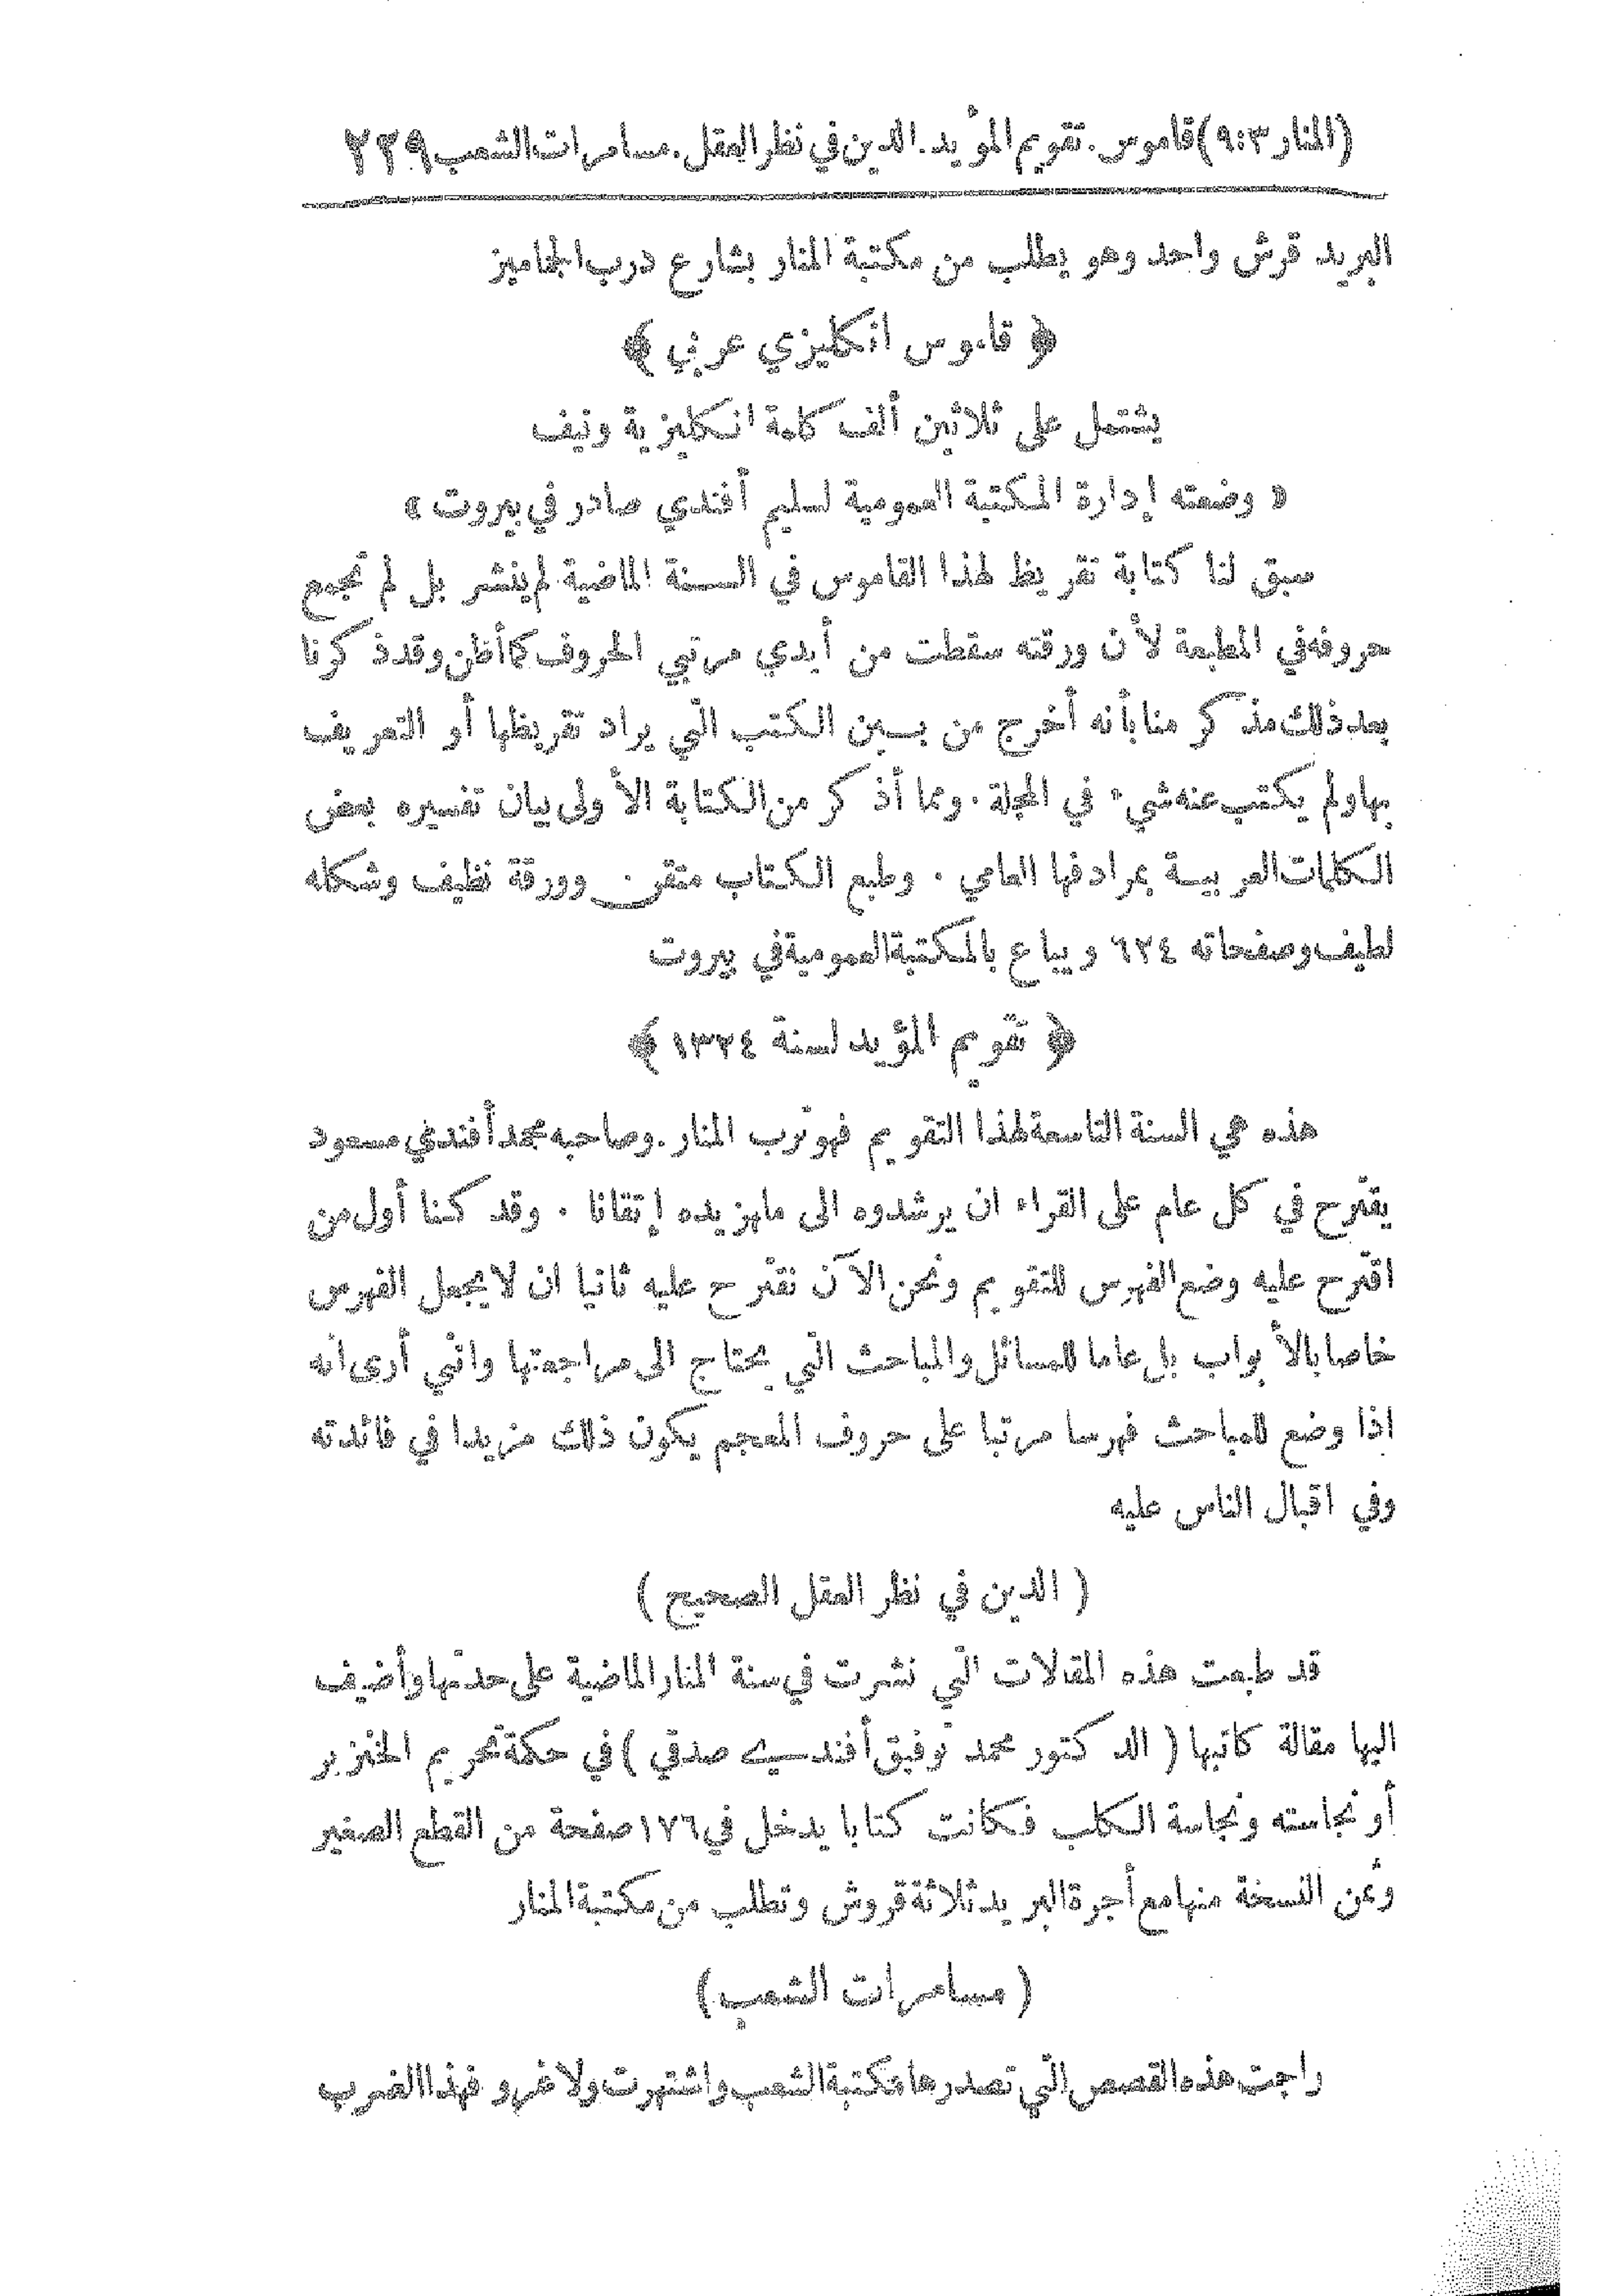 (المنار ٩:٣) قاموس. تقويم المؤيد. الدين في نظر العقل. مسامرات الشعب ٢٣٩
البريد قرش واحد وهو يطلب من مكتبة المنار بشارع درب الجماميز
﴿ قاموس انكليزي عربي ﴾
يشتمل على ثلاثين ألف كلمة انكليزية ونيف
« وضعته إدارة المكتبة العمومية لسليم أفندي صادر في بيروت »
سبق لنا كتابة تقريظ لهذا القاموس في السنة الماضية لم ينشر بل لم تجمع
حروفه في المطبعة لأن ورقته سقطت من أيدي مرتبي الحروف كما أظن وقد ذكرنا
بعد ذلك مذكر منا بأنه أخرج من بين الكتب التي يراد تقريظها أو التعريف
بها ولم يكتب عنه شيء في المجلة . ومما أذكر من الكتابة الأولى بيان تفسيره بعض
الكلمات العربية بمرادفها العامي . وطبع الكتاب متقن وورقة نظيف وشكله
لطيف وصفحاته ٦٢٤ ويباع بالمكتبة العمومية في بيروت
﴿ تقويم المؤيد لسنة ١٣٢٤ ﴾
هذه هي السنة التاسعة لهذا التقويم فهو ترب المنار . وصاحبه محمد أفندي مسعود
يقترح في كل عام على القراء ان يرشدوه الى ما يزيده إتقانا . وقد كنا أول من
اقترح عليه وضع الفهرس للتقويم ونحن الآن نقترح عليه ثانيا ان لا يجعل الفهرس
خاصا بالأبواب بل عاما للمسائل والمباحث التي يحتاج الى مراجعتها واني أرى انه
اذا وضع للمباحث فهرسا مرتبا على حروف المعجم يكون ذلك مزيدا في فائدته
وفي اقبال الناس عليه
( الدين في نظر العقل الصحيح )
قد طبعت هذه المقالات التي نشرت في سنة المنار الماضية على حدتها وأضيف
اليها مقالة كاتبها ( الدكتور محمد توفيق أفندي صدقي ) في حكمة تحريم الخنزير
أو نجاسته ونجاسة الكلب فكانت كتابا يدخل في ١٧٦ صفحة من القطع الصغير
وثمن النسخة منها مع أجرة البريد ثلاثة قروش وتطلب من مكتبة المنار
( مسامرات الشعب )
راجت هذه القصص التي تصدرها مكتبة الشعب واشتهرت ولا غرو فهذا الضرب